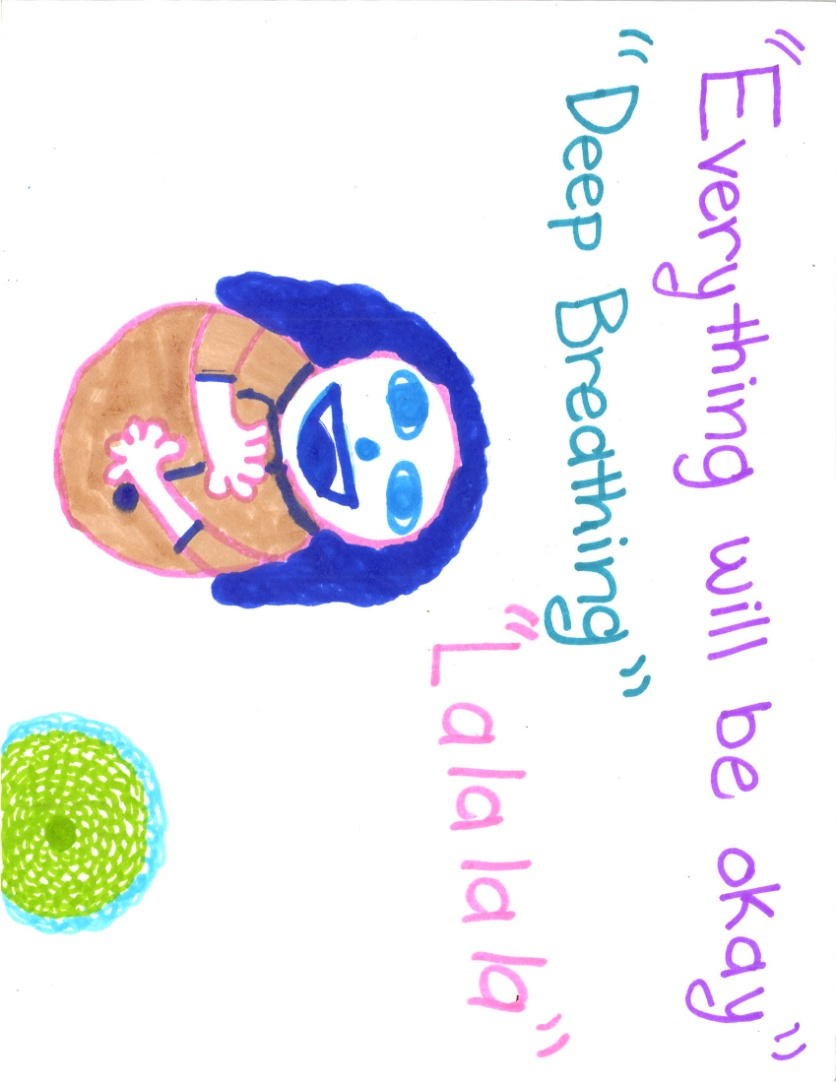 "Everything will be okay"
"Deep Breathing"
"La la la la"